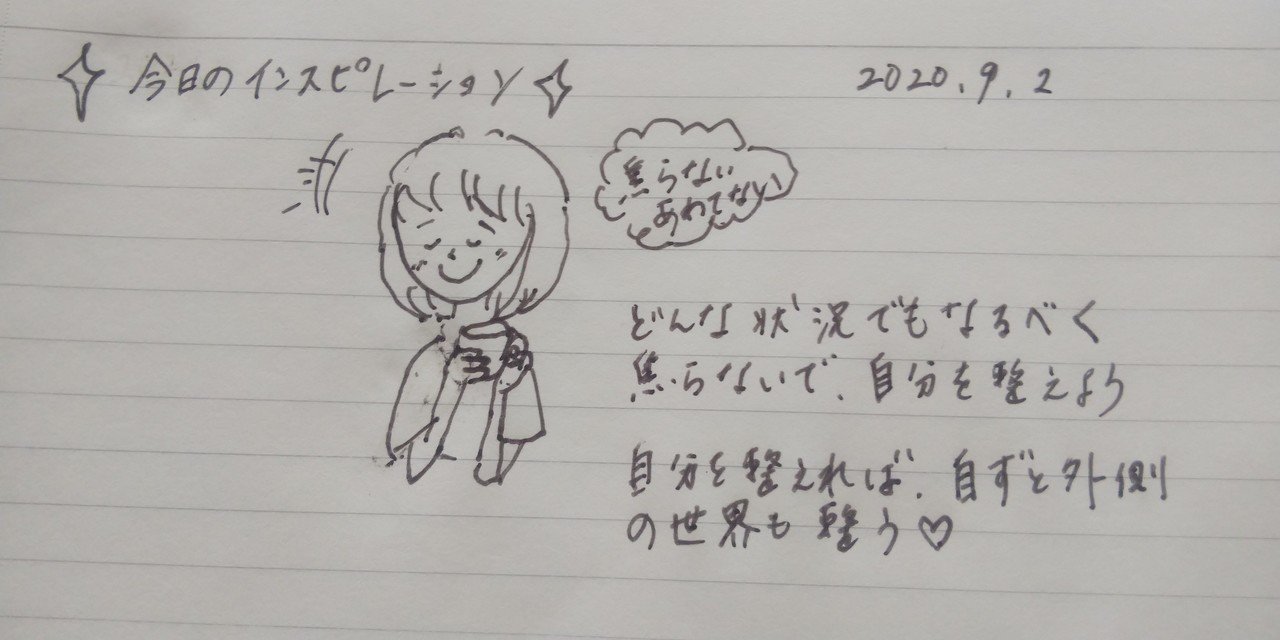 今日のインスピレーション
2020.9.2
焦らない
あわてない
どんな状況でもなるべく
焦らないで、自分を整えよう
自分を整えれば、自ずと外側
の世界も整う♡